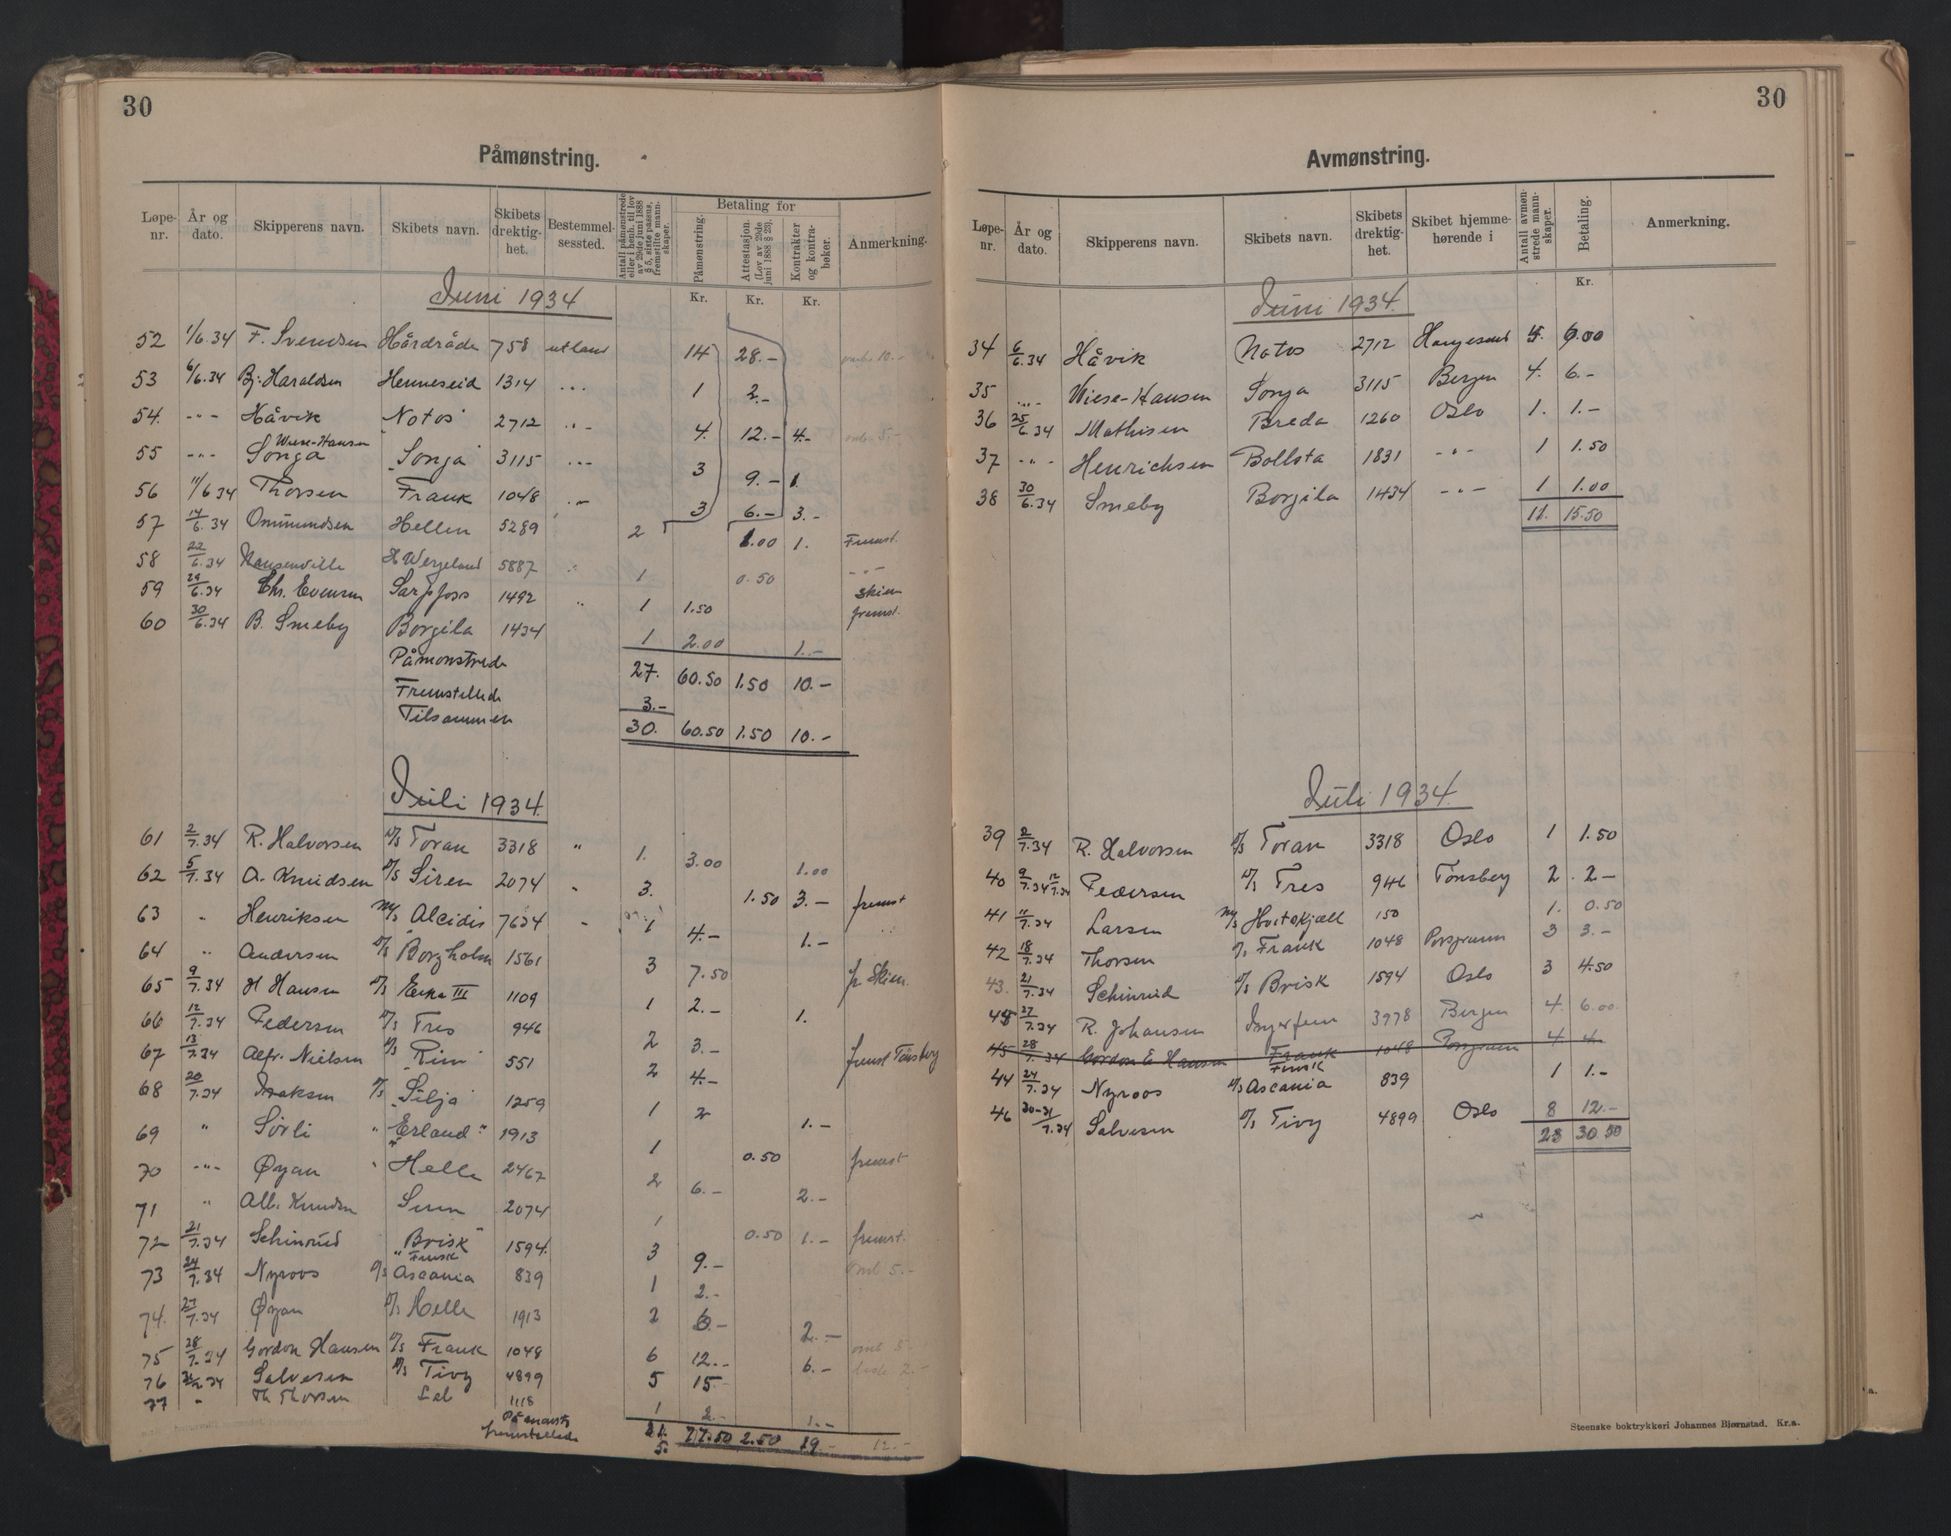 30
Påmønstring.
Løpenr. År og dato. Skipperens navn. Skibets navn. Skibets drektighet. Bestemmelsessted. Antall påmønstrede eller i henh. til lov av 29de juni 1888 § 5, siste passus, fremstilte mannskaper. Betaling for Påmønstring. Attestasjon. (Lov av 29de juni 1888 § 23). Kontrakter og kontrabøker. Anmerkning.
Juni 1934 Kr. Kr. Kr.
52 1/6.34 F. Svendsen Hårdråde 758 utland 14 28.- 10.-
53 6/6.34 Bj. Haraldsen Henneseid 1314 ... 1 2.-
54. -"- Håvik Notos 2712 "- 4. 12.- 4.- 5.-
55 -"- Wiese-Hansen Songa "Sonja" 3115 ... 3 9.- 1.
56 11/6 34 Thorsen Frank 1048 "- 3 6.- 3.-
57 14/6.34 Ommundsen Hellen 5289 2 1.00 1. Fremst.
58 22/6.34 Hansenville H Wergeland 5887 " 1 0.50 -"-
59 29/6.34 Chs. Evensen Sarpfoss 1492 " 1 1.50 Skien fremst.
60 30/6.34 B. Smeby Borgila 1434 1 2.00 1.-
Påmonstrede 27. 60.50 1.50 10.-
Fremstellede 3.-
Tilsammen 30. 60.50 1.50 10.-
Juli 1934.
61 2/7.34 R. Halvorsen D/S Toran 3318 " 1. 3.00 1.00
62 5/7.34 A. Knudsen D/S Siren 2074 " 3. 1.50 3.- fremst
63 " Henriksen M/S Alcidis 7634 " 1 4.- 1.-
64 " Andersen D/S Borgholm 1561 3 7.50 fr. Skien.
65 9/7.34 H Hansen D/S Erka III 1109 1 2.- 1.
66 12/7.34 Pedersen D/S Tres 946 2 3.- fremst Tønsberg
67 13/7.34 Alfr. Nielsen D/S "Rim" 551 2 4.-
68 20/7.34 Isaksen D/S "Silja" 1259 1 2 1.-
69 " Sørli " "Erland" 1913 1 0.50 fremst
70 -"- Øyan " "Helle 2467 2 6.- 2.-
71 " Alb. Knudsen Siren 2074 1 0.50 1.- fremst.
72 21/7.34 Schinrud "Brisk" 1594. 3 9.- 5.-
73 24/7.34 Nyroos D/S "Finsk Ascania 839 1 2.-
74. 27/7.34 Øyan D/S Helle 1913 2 6.- 2.-
75 28/7.34 Gordon Hansen D/S Frank 1048 6 12.- 6.- 5.-
76 Salvesen D/S Tivy 4899 5 15.- 2.-
77 " Th Thorsen Lel 1118 1 2.- 1.-
Påmønst. 77.50 2.50 19.- 12.-
fremstellede 5.
30
Avmønstring.
Løpenr. År og dato. Skipperens navn. Skibets navn. Skibets drektighet. Skibet hjemmehørende i Antall avmønstrede mannskaper. Betaling. Anmerkning.
Kr.
Juni 1934.
34 6/6.34 Håvik Notos 2712 Haugesund 4. 6.00
35 -"- Wiese-Hansen Sonja 3115 Bergen 4. 6.-
36 25/6.34 Mathisen Breda 1260 Oslo 1. 1.-
37 -"- Henrichsen Bollsta 1831 -"- 1 1.50
38 30/6.34 Smeby Borgila 1434 -"- 1 1.00
11. 15.50
Juli 1934.
39 2/7.34 R. Halvorsen D/S Toran 3318 Oslo 1 1.50
40 9/7.34 12/7.34 Pedersen D/S Tres 946 Tønsberg 2 2.-
41 11/7.34 Larsen M/S Hvitskjæll 150 1. 0.50
42 18/7.34 Thorsen D/S Frank 1048 Porsgrunn 3 3.-
43. 21/7.34 Schinrud D/S Brisk 1594 Oslo 3 4.50
45 27/7.34 R. Johansen Ingerfem 3978 Bergen 4. 6.00
45 28/7.34 Gordon E Hansen Frank 1048 Porsgrunn 4 4
44 24/7.34 Nyroos D/S Finsk Ascania 839 1 1.-
46 30-31/7.34 Salvesen D/S Tivy 4899 Oslo 8 12.-
23 30.50
Steenske boktrykkeri Johannes Bjørnstad. Kr.a.